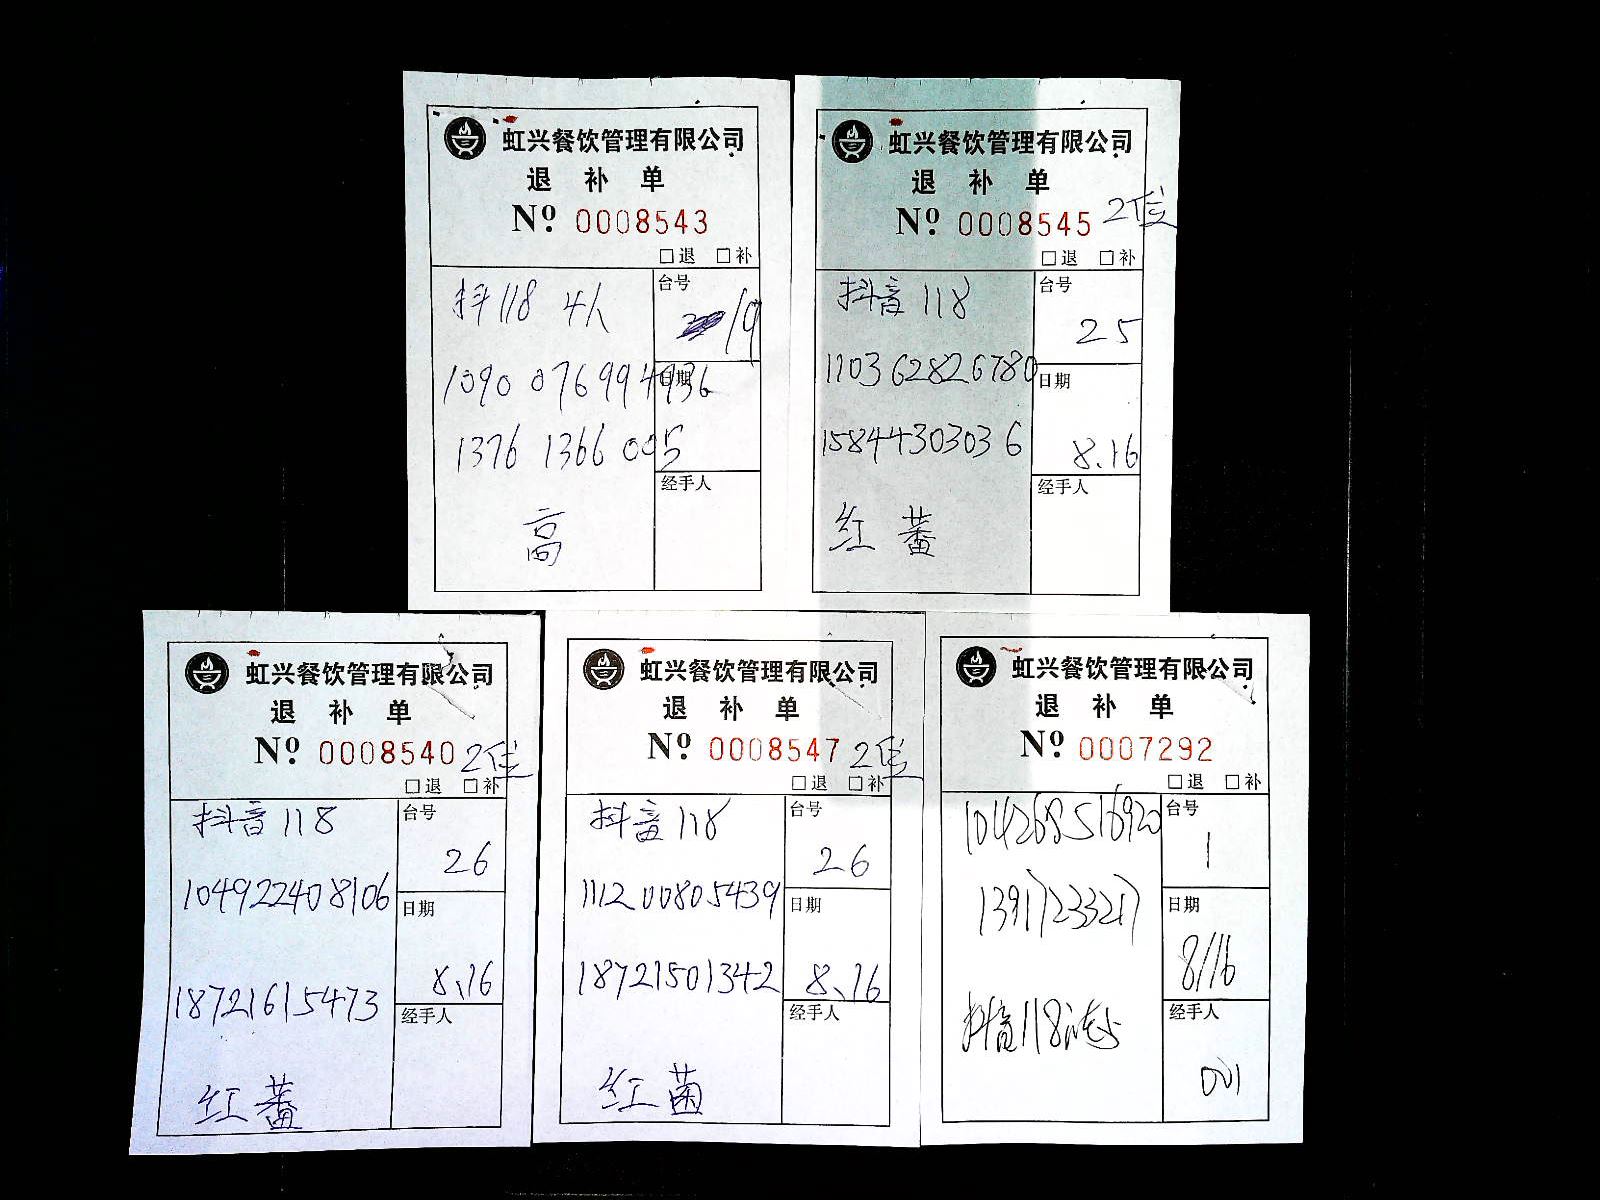 虹兴餐饮管理有限公司
退 补 单
Nº 0008543
□退 □补
抖118 4人
台号
19
1090076994936
日期
13761366005
经手人
高
虹兴餐饮管理有限公司
退 补 单
Nº 0008545 2位
□退 □补
抖音118
台号
25
110362826780
日期
15844303036
8.16
经手人
红 蕃
虹兴餐饮管理有限公司
退 补 单
Nº 0008540 2位
□退 □补
抖音118
台号
26
104922408106
日期
18721615473
8.16
经手人
红 蕃
虹兴餐饮管理有限公司
退 补 单
Nº 0008547 2位
□退 □补
抖音118
台号
26
111200805439
日期
18721501342
8.16
经手人
红 菌
虹兴餐饮管理有限公司
退 补 单
Nº 0007292
□退 □补
104268516920
台号
1
13917233217
日期
8/16
抖音118
经手人
001